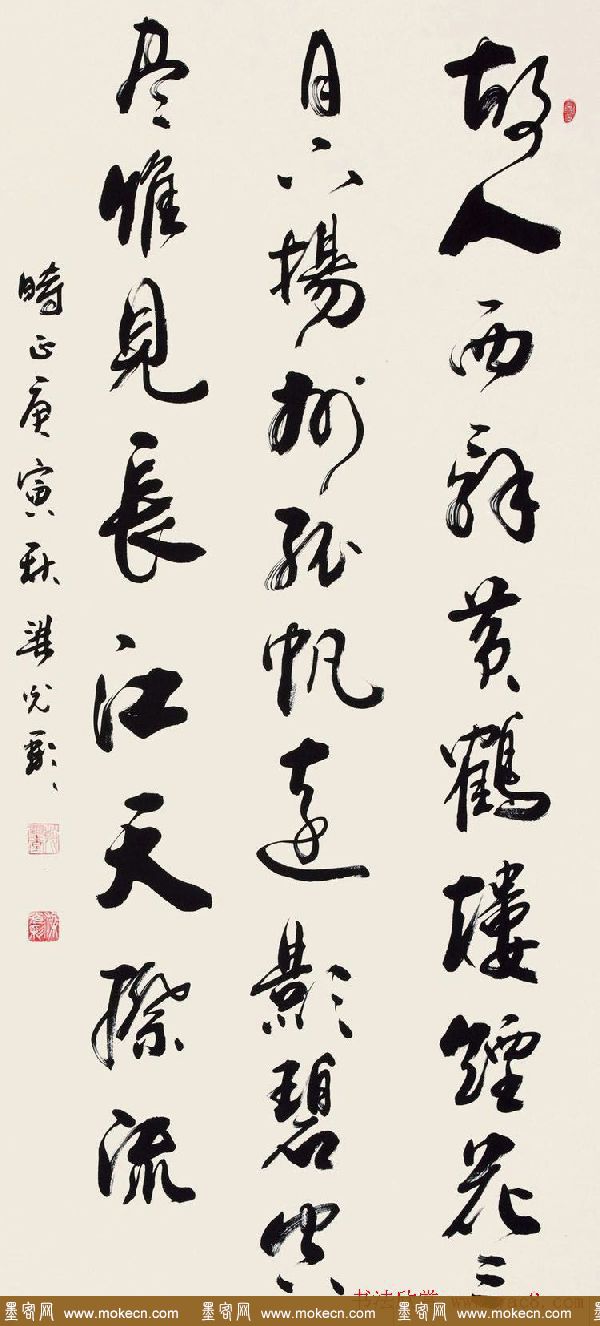 故人西辞黄鹤楼煙花三
月下揚州孤帆遠影碧空
尽惟見長江天際流
時正庚寅秋
书法欣赏
墨客网 www.mokecn.com 墨客网 www.mokecn.com 墨客网 www.mokecn.com